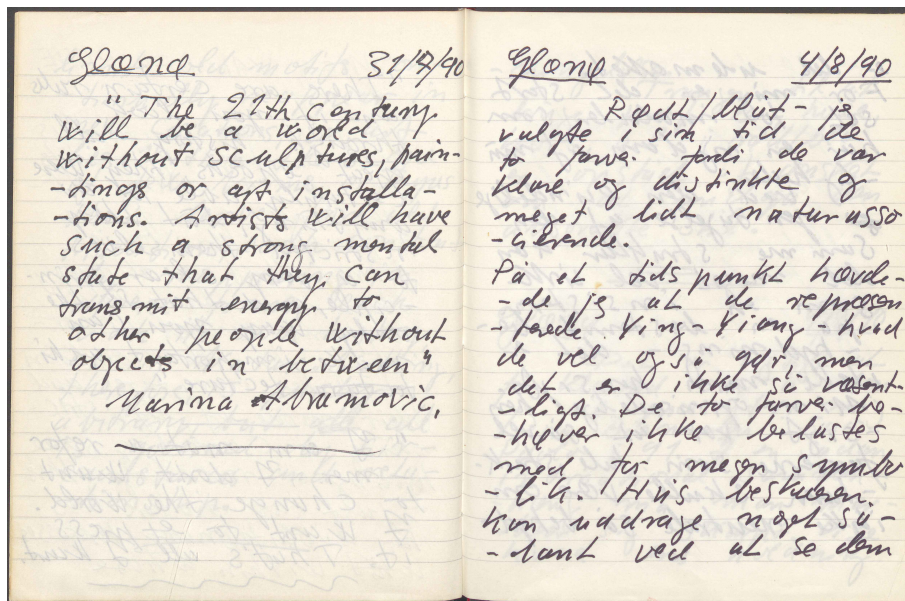 Gland 31/7/90
" The 21th century
will be a world
without sculptures, pain-
-tings or art installa-
-tions. Artists will have
such a strong mental
state that they can
transmit energy to
other people without
objects in between"
Marina Abramovic.
Gland 4/8/90
Rødt/blåt - jeg
valgte i sin tid de
to farver fordi de var
klare og distinkte og
meget lidt natur asso
-cierende.
På et tidspunkt hævde-
-de jeg at de repræsen
-terede Ying-Yiang - hvad
de vel også gør, men
det er ikke så væsent-
-ligt. De to farver be-
-høver ikke belastes
med for megen symbo
-lik. Hvis beskueren
kan uddrage noget så-
-dant ved at se dem